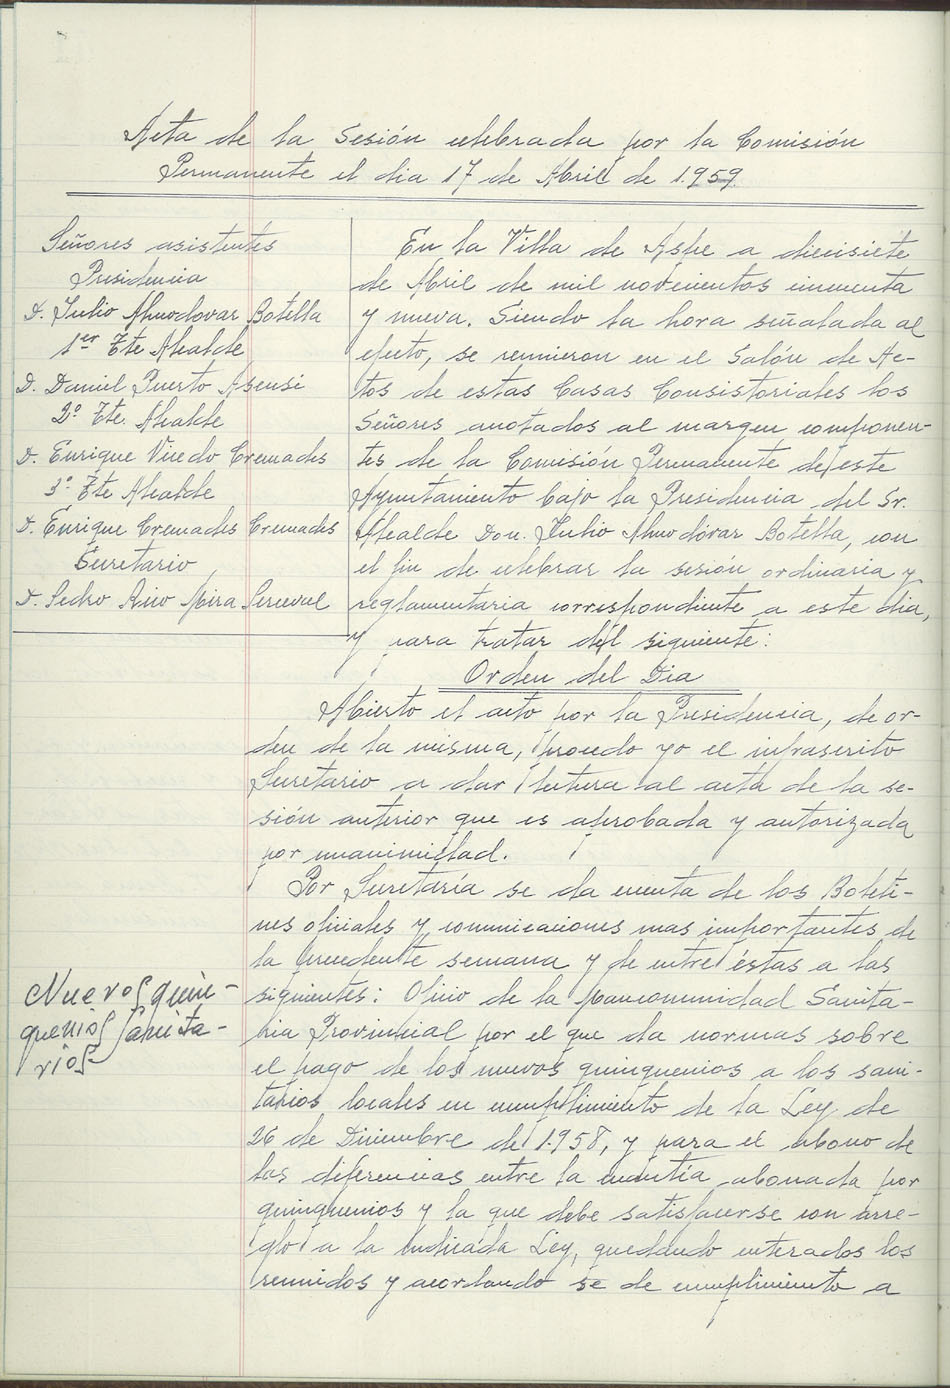 Acta de la Sesión celebrada por la Comisión
Permanente el dia 17 de Abril de 1.959.
Señores asistentes
Presidencia
D. Julio Almodovar Botella
1er Tte Alcalde
D. Daniel Puerto Asensi
2º Tte. Alcalde
D. Enrique Vicedo Cremades
3º Tte Alcalde
D. Enrique Cremades Cremades
Secretario
D. Pedro Rico Mira Perceval
En la Villa de Aspe a diecisiete
de Abril de mil novecientos cincuenta
y nueva. Siendo la hora señalada al
efecto, se reunieron en el Salón de Ac-
tos de estas Casas Consistoriales los
Señores anotados al margen componen-
tes de la Comisión Permanente de este
Ayuntamiento bajo la Presidencia del Sr.
Alcalde Don. Julio Almodóvar Botella, con
el fin de celebrar la sesión ordinaria y
reglamentaria correspondiente a este dia,
y para tratar del siguiente:
Orden del Dia
Abierto el acto por la Presidencia, de or-
den de la misma, procedo yo el infrascrito
Secretario a dar lectura al acta de la se-
sión anterior que es aprobada y autorizada
por unanimidad.
Por Secretaría se da cuenta de los Boleti-
nes oficiales y comunicaciones mas importantes de
la precedente semana y de entre éstas a las
siguientes: Oficio de la Mancomunidad Sanita-
ria Provincial por el que da normas sobre
el pago de los nuevos quinquenios a los sani-
tarios locales en cumplimiento de la Ley de
26 de Diciembre de 1.958, y para el abono de
las diferencias entre la cuantía abonada por
quinquenios y la que debe satisfacerse con arre-
glo a la indicada Ley, quedando enterados los
reunidos y acordando se de cumplimiento a
Nuevos quin-
quenios sanita-
rios